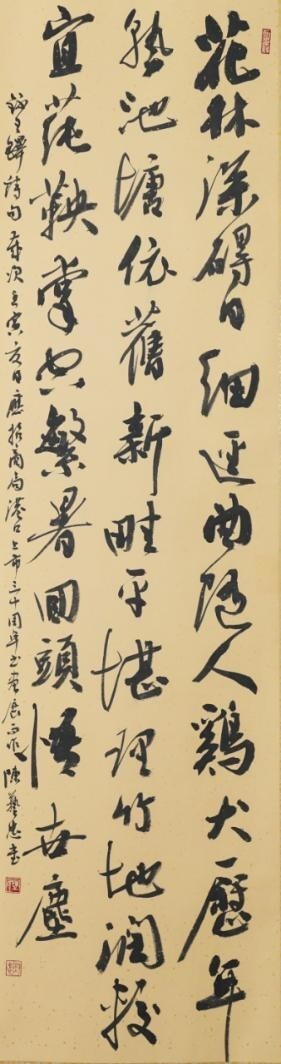 花林深碍日細逕曲隨人鷄犬歷年
熟池塘依舊新畦平堪理竹地潤較
宜蒓鞅掌空繁暑回頭悟世塵
錄王鐸詩句歲次壬寅夏日應招商局港口上市三十周年書畫展而作陳藝忠書